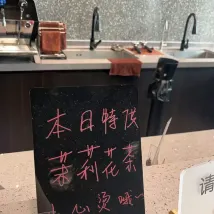 本日特供
茉莉花茶
小心烫哦~
请